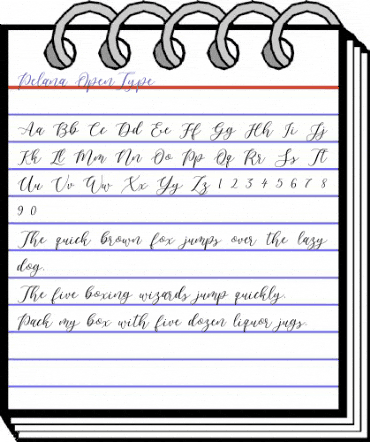 Pelana OpenType
Aa Bb Cc Dd Ee Ff Gg Hh Ii Jj
Kk Ll Mm Nn Oo Pp Qq Rr Ss Tt
Uu Vv Ww Xx Yy Zz 1 2 3 4 5 6 7 8
9 0
The quick brown fox jumps over the lazy
dog.
The five boxing wizards jump quickly.
Pack my box with five dozen liquor jugs.